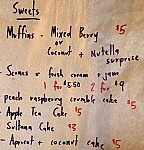 Sweets
Muffins - Mixed Berry $5
or
Coconut + Nutella
surprise
- Scones w fresh cream + jam
1 for $3.50 2 for $9
peach raspberry crumble cake $5
- Apple Tea Cake $5
- Sultana Cake $3
- Apricot + coconut cake $5